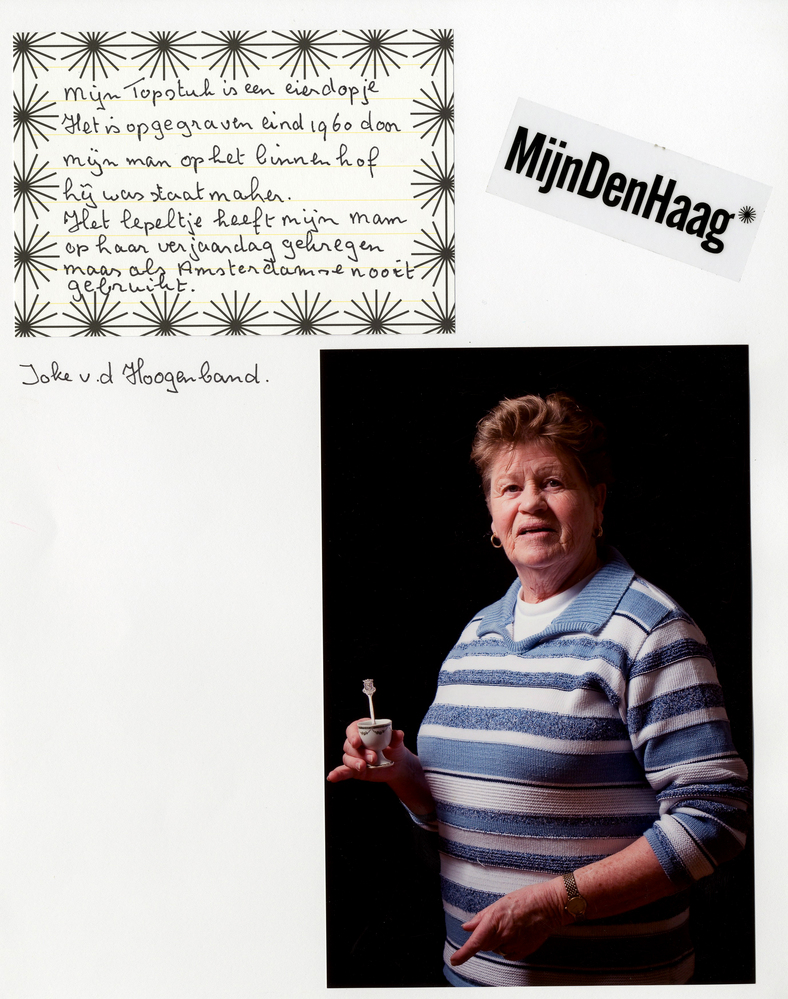 Mijn Topstuk is een eierdopje
Het is opgegraven eind 1960 door
mijn man op het binnenhof
hij was staatmaker.
Het lepeltje heeft mijn mam
op haar verjaardag gekregen
maar als Amsterdamse nooit
gebruikt.
MijnDenHaag*
Joke v.d Hoogenband.